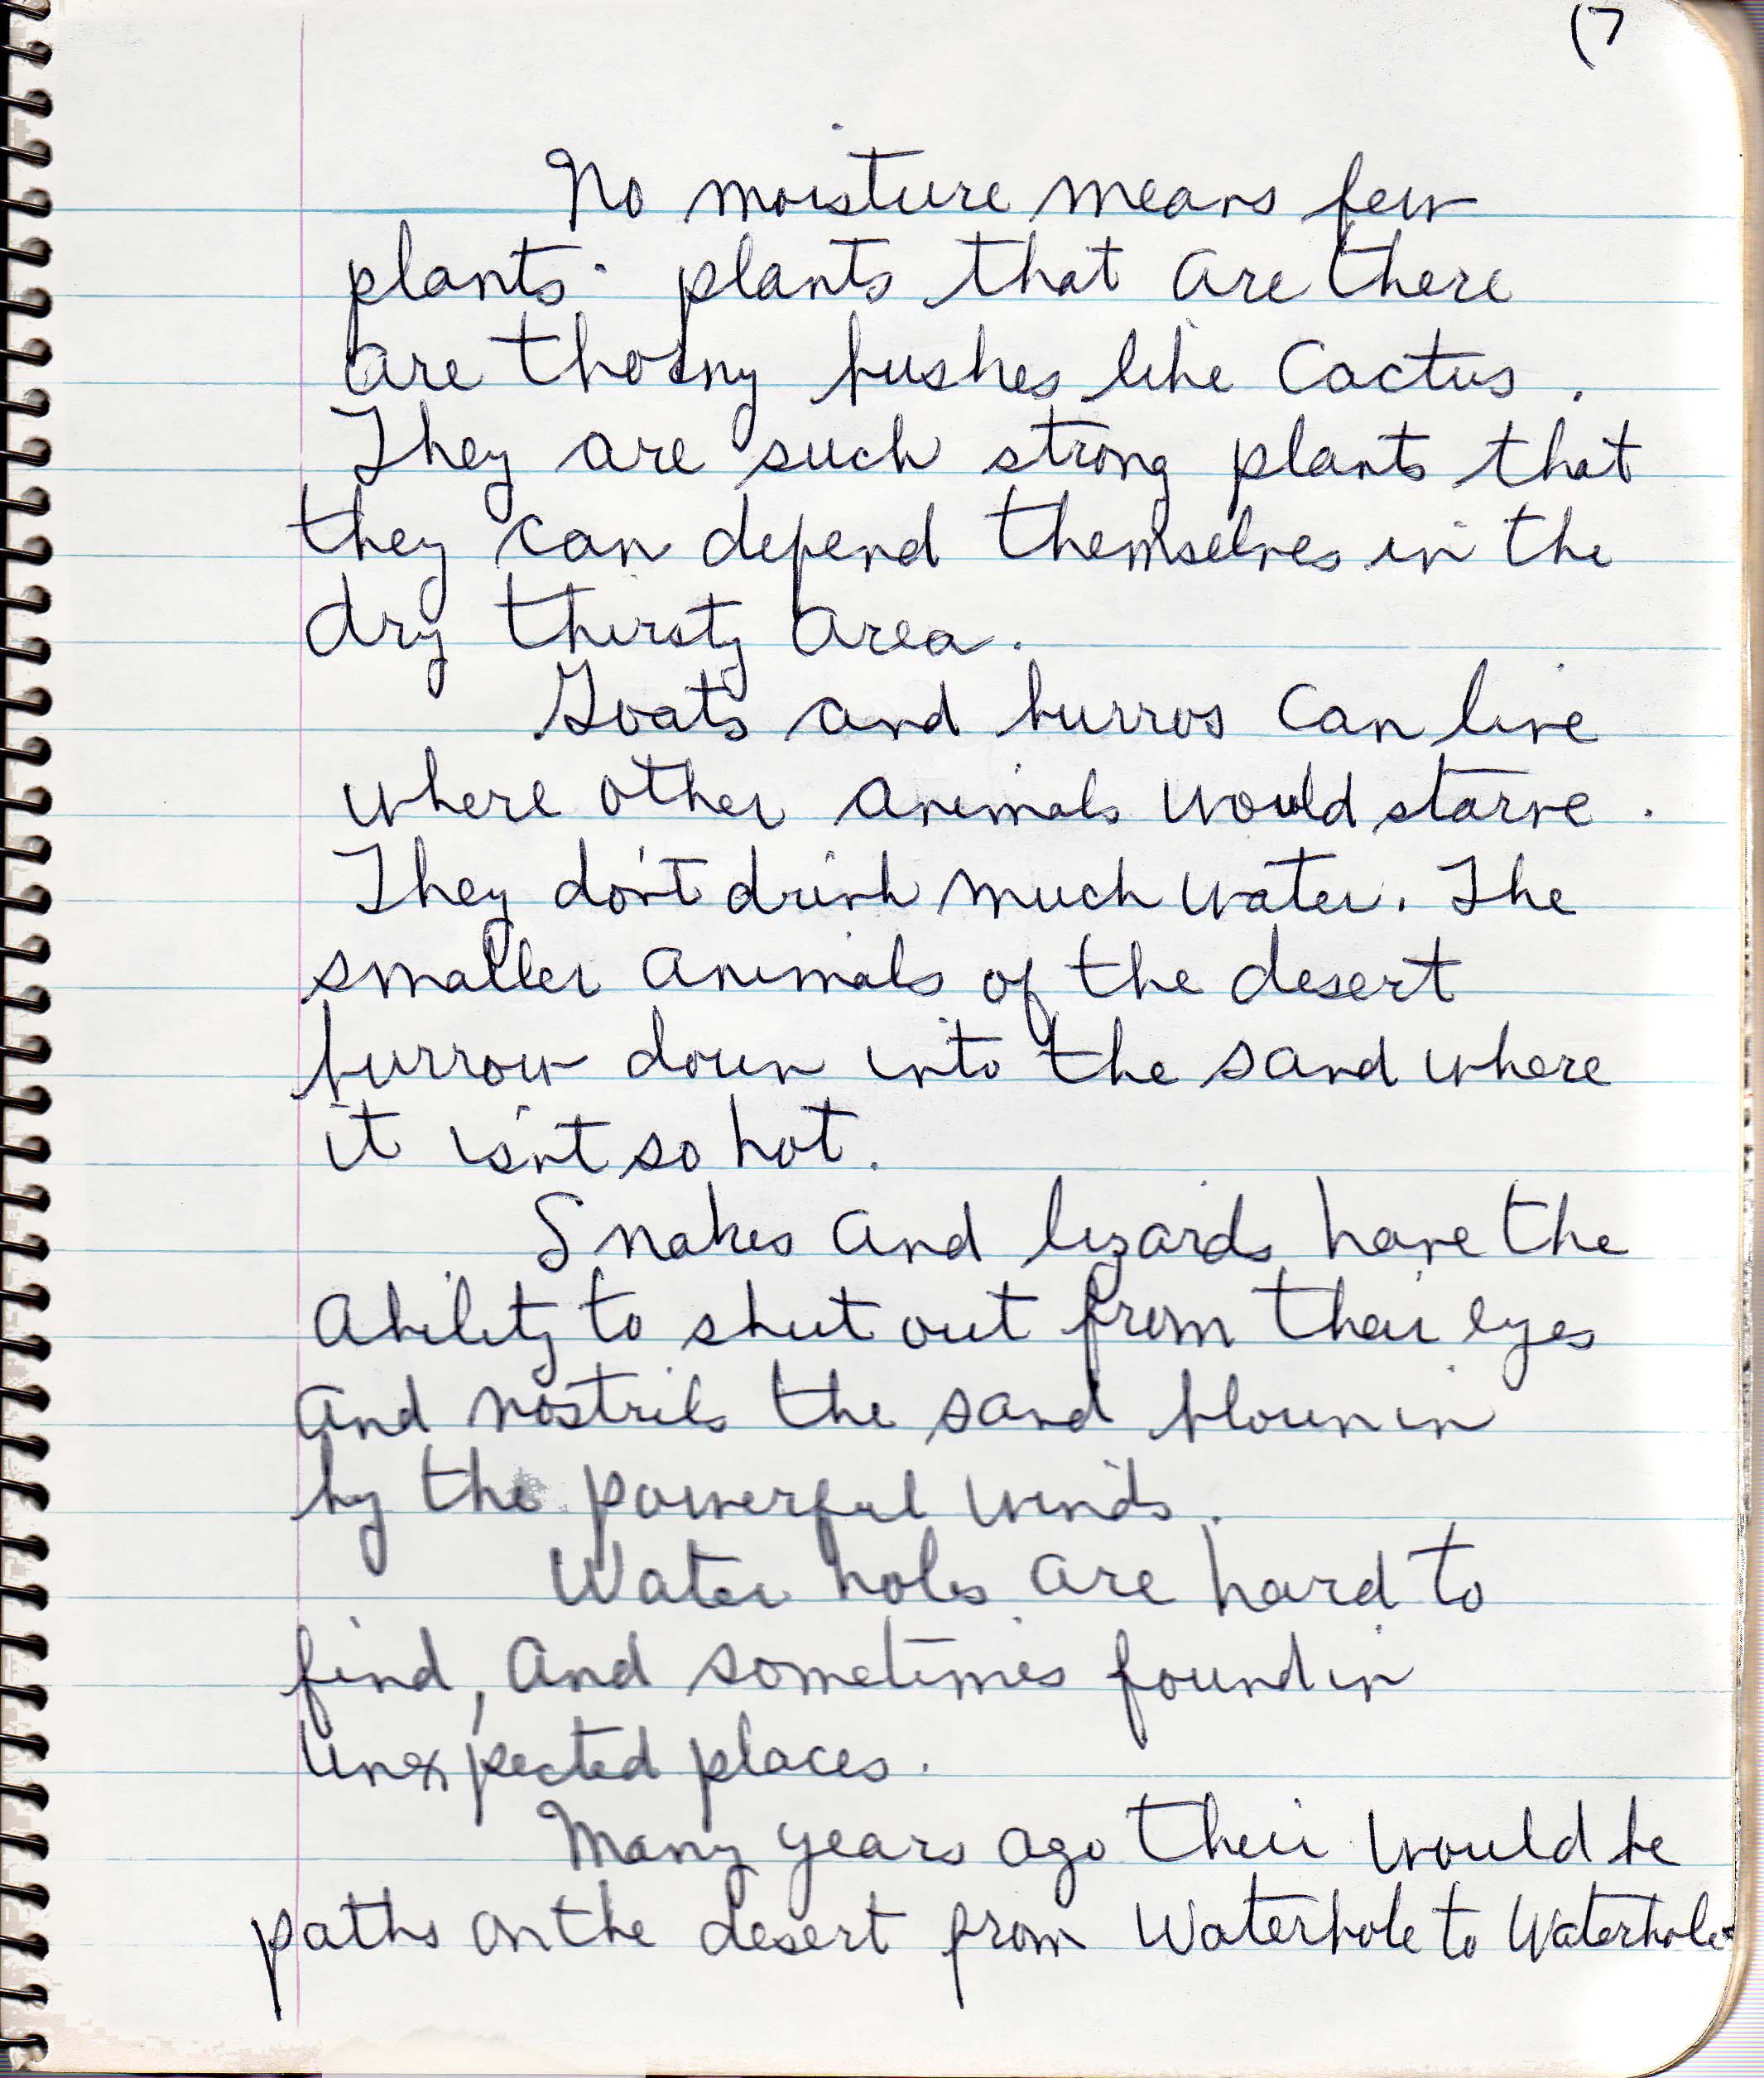 (7
No moisture means few
plants. plants that are there
are thorny bushes like Cactus.
They are such strong plants that
they can depend themselves in the
dry thirsty area.
Goats and burros can live
where other animals would starve.
They don't drink much water. The
smaller animals of the desert
burrow down into the sand where
it isn't so hot.
Snakes and lizards have the
ability to shut out from their eyes
and nostrils the sand blown in
by the powerful winds.
Water holes are hard to
find, and sometimes found in
unexpected places.
Many years ago their would be
paths on the desert from Waterhole to Waterhole